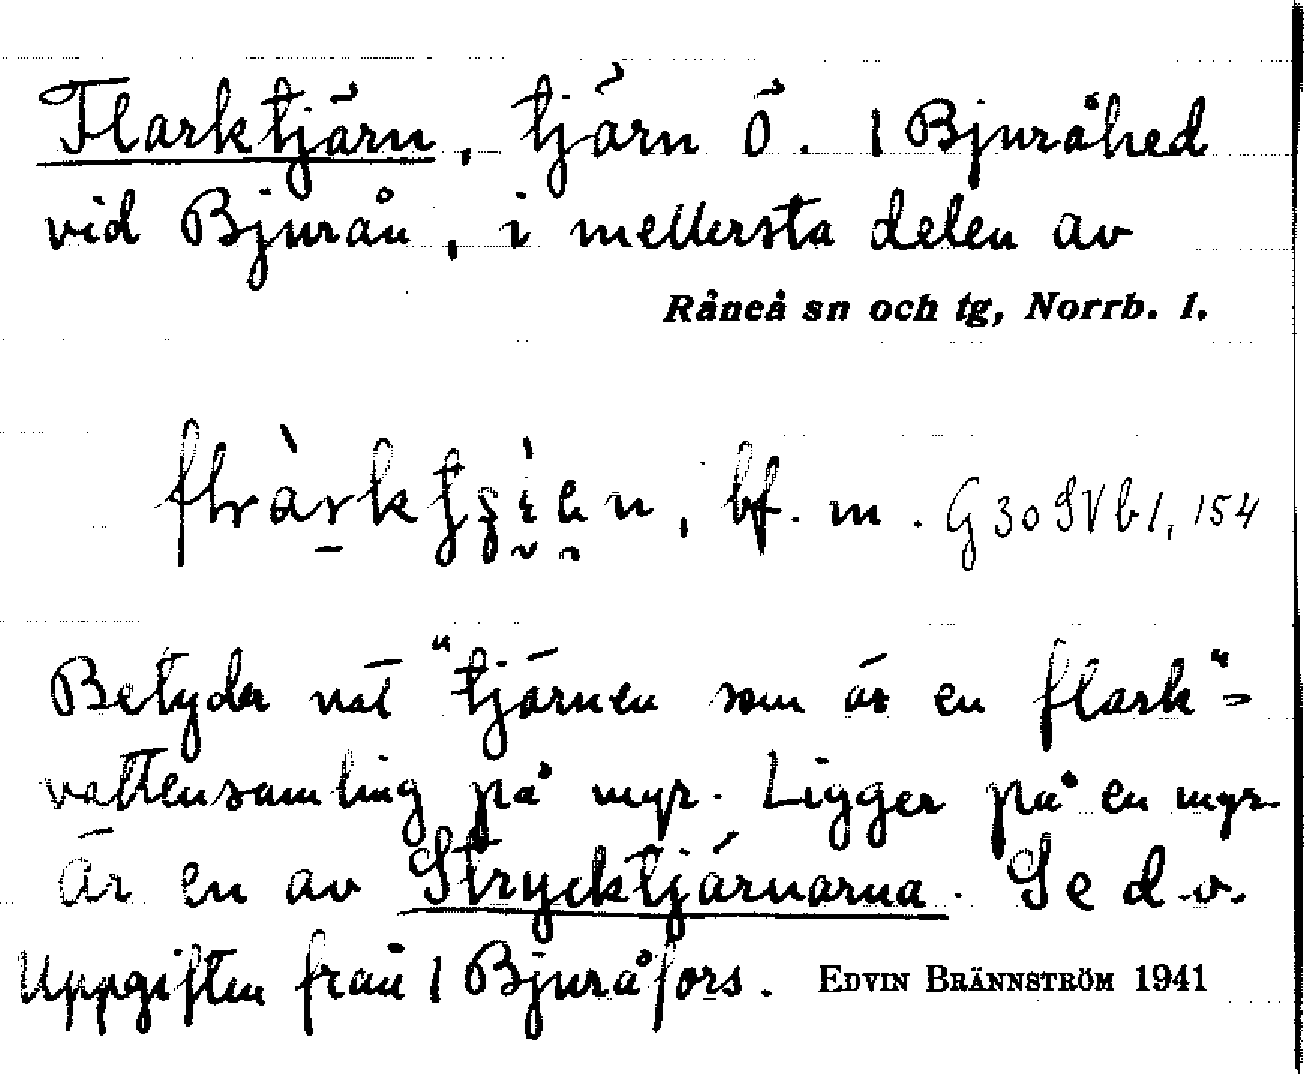 Flarktjärn, tjärn Ö. 1 Bjuråhed
vid Bjurån, i mellersta delen av
Råneå sn och tg, Norrb. l.
bf. m. G30 SVb1, 154
Betyder väl "tjärnen som är en flark"=
vattensamling på myr. Ligger på en myr.
Är en av Strycktjärnarna. Se d.o.
Uppgiften från 1 Bjuråfors. EDVIN BRÄNNSTRÖM 1941